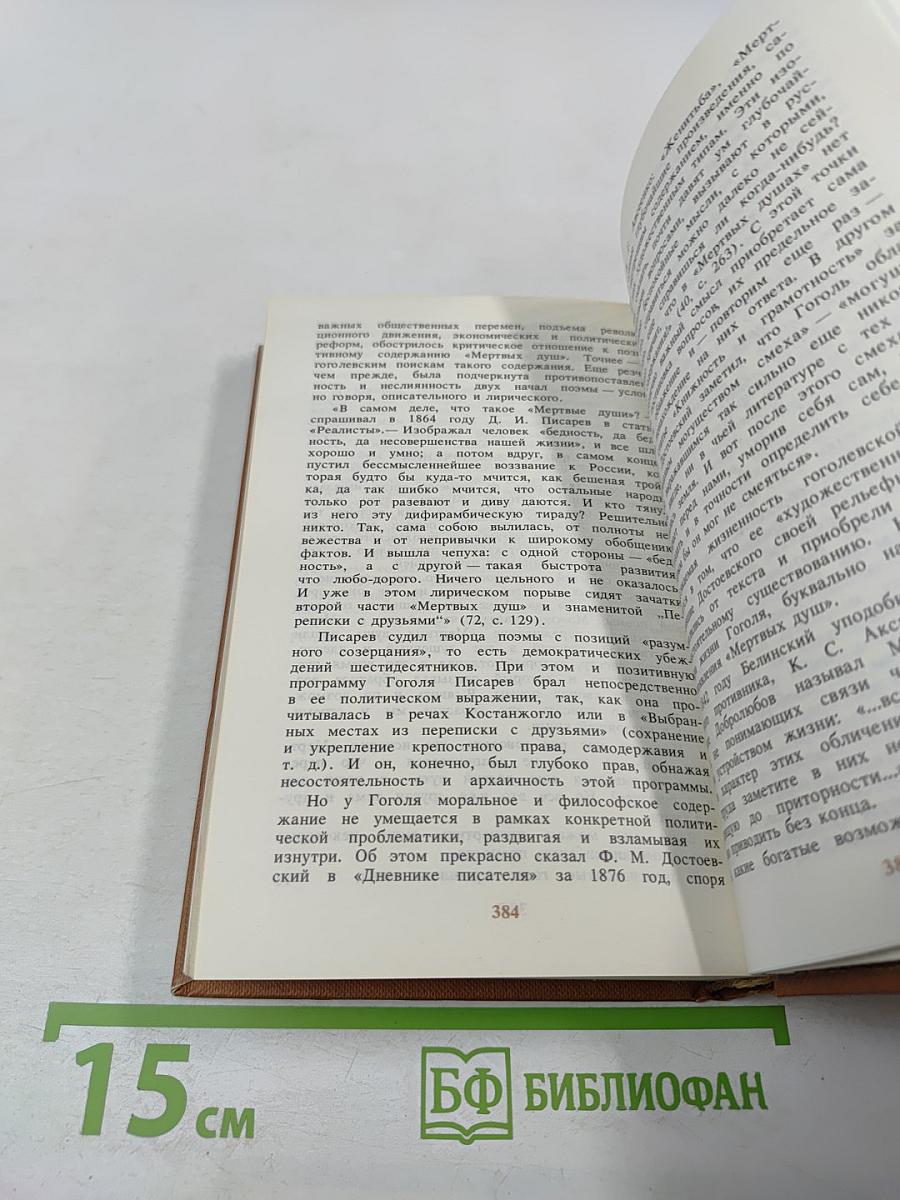 важных общественных перемен, подъема револю-
ционного движения, экономических и политических
реформ, обострилось критическое отношение к пози-
тивному содержанию «Мертвых душ». Точнее —
гоголевским поискам такого содержания. Еще резче,
чем прежде, была подчеркнута противопоставлен-
ность и неслиянность двух начал поэмы — услов-
но говоря, описательного и лирического.
«В самом деле, что такое «Мертвые души»? —
спрашивал в 1864 году Д. И. Писарев в статье
«Реалисты».— Изображал человек «бедность, да бед-
ность, да несовершенства нашей жизни», и все шло
хорошо и умно; а потом вдруг, в самом конце,
пустил бессмысленнейшее воззвание к России, ко-
торая будто бы куда-то мчится, как бешеная трой-
ка, да так шибко мчится, что остальные народы
только рот разевают и диву даются. И кто тянул
из него эту дифирамбическую тираду? Решительно
никто. Так, сама собою вылилась, от полноты не-
вежества и от непривычки к широкому обобщению
фактов. И вышла чепуха: с одной стороны — «бед-
ность», а с другой — такая быстрота развития,
что любо-дорого. Ничего цельного и не оказалось.
И уже в этом лирическом порыве сидят зачатки
второй части «Мертвых душ» и знаменитой „Пе-
реписки с друзьями“» (72, с. 129).
Писарев судил творца поэмы с позиций «разум-
ного созерцания», то есть демократических убеж-
дений шестидесятников. При этом и позитивную
программу Гоголя Писарев брал непосредственно
в ее политическом выражении, так, как она про-
читывалась в речах Костанжогло или в «Выбран-
ных местах из переписки с друзьями» (сохранение
и укрепление крепостного права, самодержавия и
т. д.). И он, конечно, был глубоко прав, обнажая
несостоятельность и архаичность этой программы.
Но у Гоголя моральное и философское содер-
жание не умещается в рамках конкретной полити-
ческой проблематики, раздвигая и взламывая их
изнутри. Об этом прекрасно сказал Ф. М. Достоев-
ский в «Дневнике писателя» за 1876 год, споря
384
«Женитьба», «Мерт-
произведения, са-
содержанием, именно по
художественным типам. Эти изо-
почти давят ум глубочай-
вопросами, вызывают в рус-
мысли, с которыми,
можно далеко не сей-
справишься ли когда-нибудь?
что в «Мертвых душах» нет
(40, с. 263). С этой точки
смысл приобретает сама
вопросов, их предельное за-
и — повторим еще раз —
на них ответа. В другом
«Книжность и грамотность»
заметил, что Гоголь
могуществом смеха» — «могуще-
так сильно еще нико-
ни в чьей литературе с тех
земля. И вот после этого смеха
перед нами, уморив себя сам,
и в точности определить себе
бы он мог не смеяться».
жизненность гоголевской
в том, что ее «художественн
Достоевского своей рельеф
от текста и приобрели
существованию.
жизни Гоголя, буквально на
«Мертвых душ».
году Белинский уподоби
противника, К. С. Акс
Добролюбов называл М
не понимающих связи
устройством жизни: «...вс
характер этих обличени
труда заметите в них не
до приторности...
приводить без конца.
какие богатые возмож
15 см
БФ БИБЛИОФАН